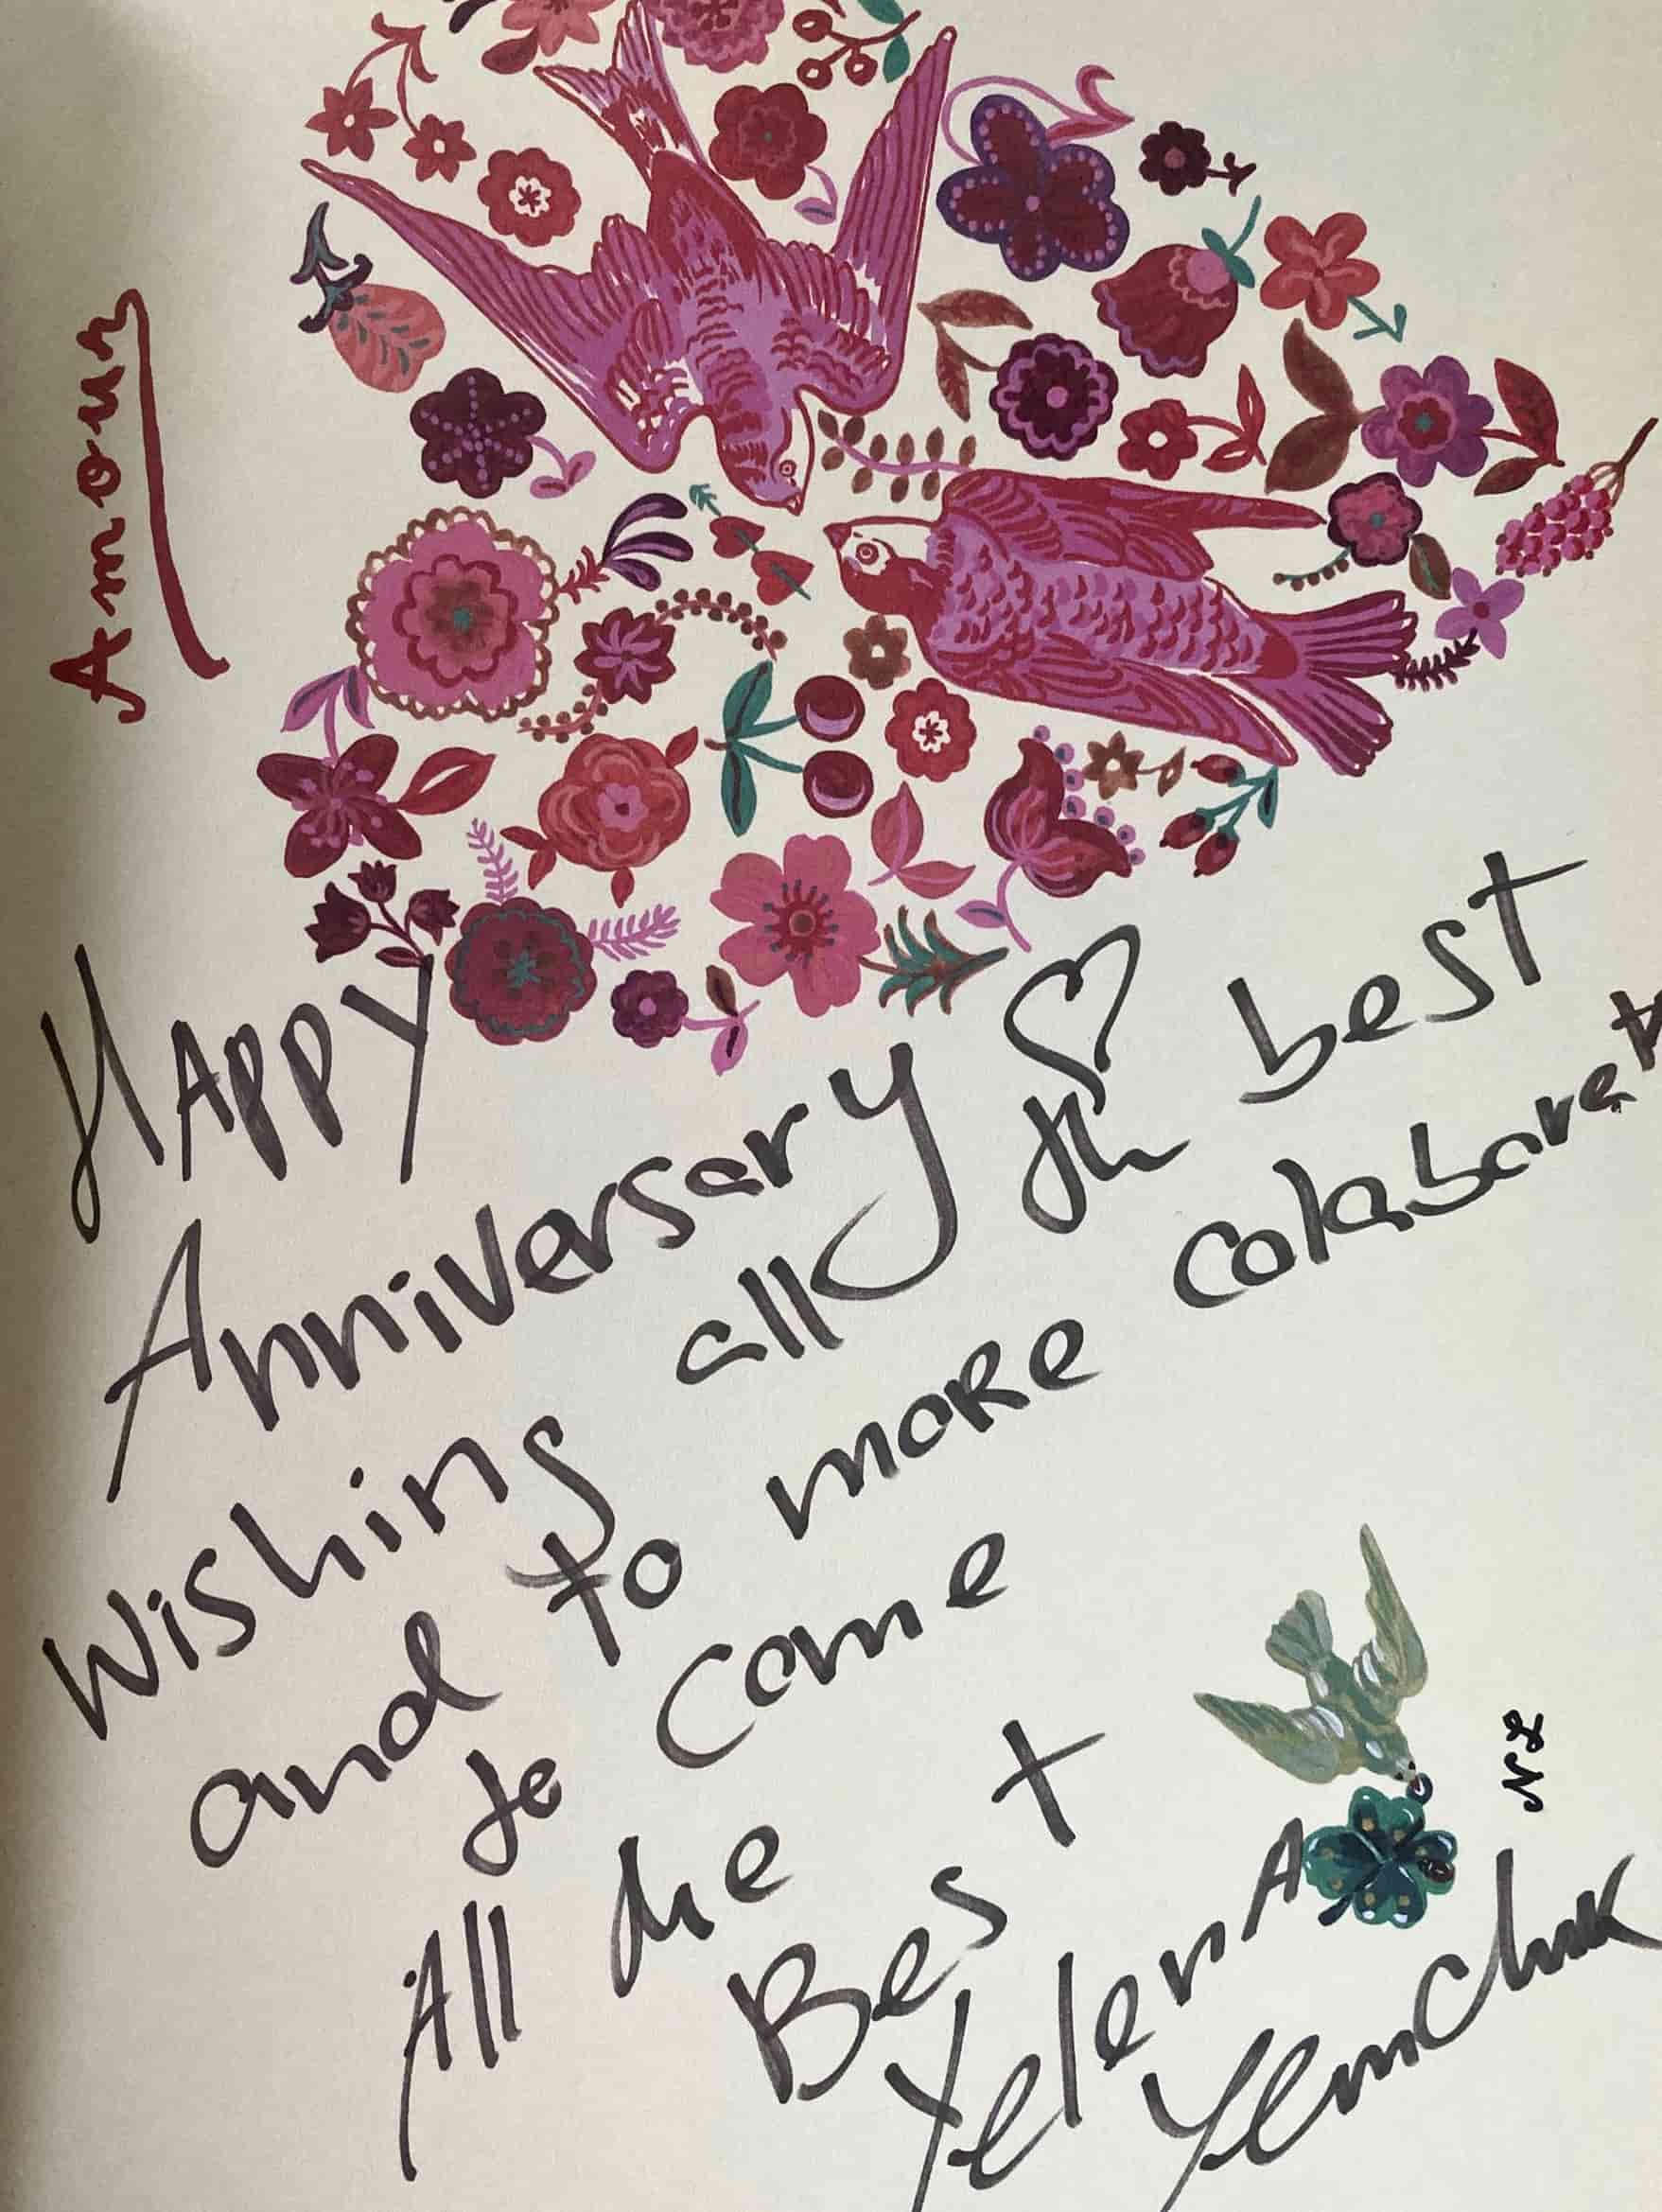 Amour
Happy
Anniversary
Wishing all the best
and to more
to come
All the
Best
Yelena
Yemchuk